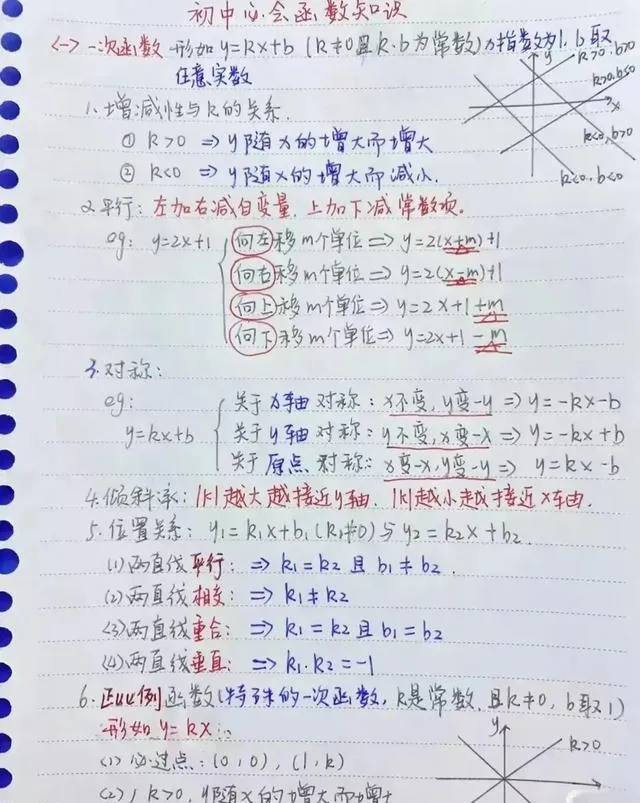 初中必会函数知识
<一> 一次函数 形如 y=kx+b (k≠0且k.b为常数) x指数为1, b取
任意实数
1. 增减性与k的关系.
① k>0 => y随x的增大而增大
② k<0 => y随x的增大而减小.
y
x
k>0, b>0
k>0, b<0
k<0, b>0
k<0, b<0
2. 平行: 左加右减自变量, 上加下减常数项.
eg: y=2x+1
向左移m个单位 => y=2(x+m)+1
向右移m个单位 => y=2(x-m)+1
向上移m个单位 => y=2x+1+m
向下移m个单位 => y=2x+1-m
3. 对称:
eg:
y=kx+b
关于x轴对称: x不变, y变-y => y=-kx-b
关于y轴对称: y不变, x变-x => y=-kx+b
关于原点对称: x变-x, y变-y => y=kx-b
4. 倾斜率: |k|越大越接近y轴. |k|越小越接近x轴.
5. 位置关系: y₁=k₁x+b₁(k₁≠0)与y₂=k₂x+b₂
(1) 两直线平行: => k₁=k₂ 且 b₁≠b₂.
(2) 两直线相交: => k₁≠k₂
(3) 两直线重合: => k₁=k₂ 且 b₁=b₂
(4) 两直线垂直: => k₁.k₂=-1
6. 正比例函数(特殊的一次函数, k是常数, 且k≠0, b取)
形如 y=kx:
(1) 必过点: (0,0), (1,k)
(2) k>0, y随x的增大而增大
y
k>0